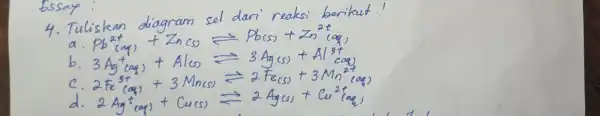 Essay :
4. Tuliskan diagram sel dari reaksi berikut !
a. Pb²⁺(aq) + Zn(s) ⇌ Pb(s) + Zn²⁺(aq)
b. 3 Ag⁺(aq) + Al(s) ⇌ 3 Ag(s) + Al³⁺(aq)
c. 2 Fe³⁺(aq) + 3 Mn(s) ⇌ 2 Fe(s) + 3 Mn²⁺(aq)
d. 2 Ag⁺(aq) + Cu(s) ⇌ 2 Ag(s) + Cu²⁺(aq)